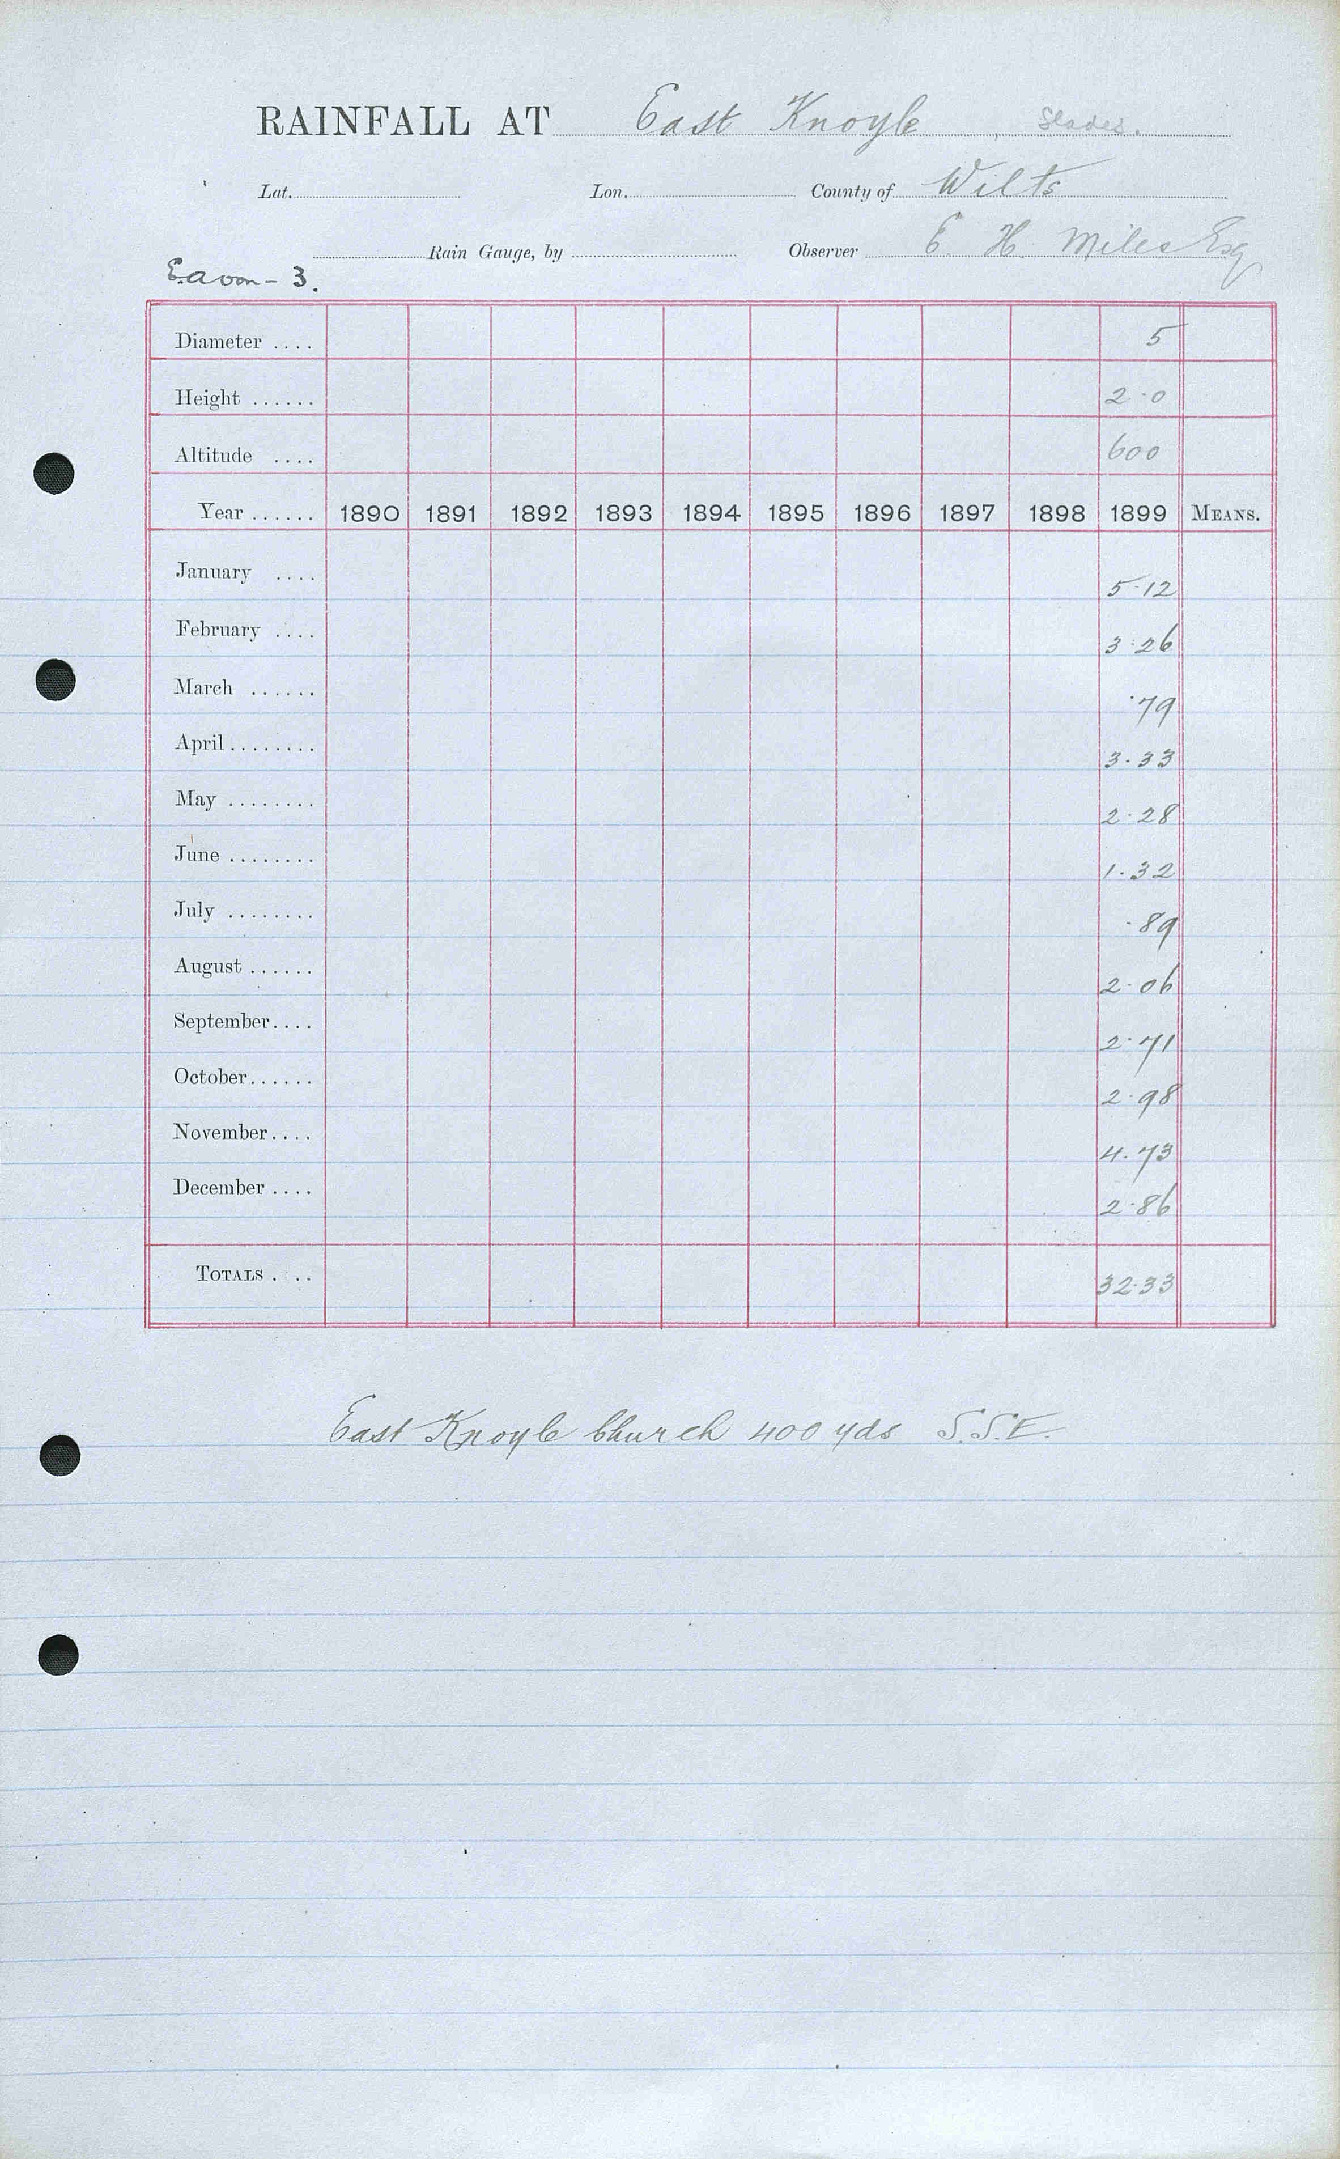 RAINFALL AT East Knoyle, Slades.
Lat. Lon. County of Wilts
Rain Gauge, by Observer E H Miles Esq
E.avon - 3.
Diameter .... 5
Height ...... 2.0
Altitude .... 600
Year ...... 1890 1891 1892 1893 1894 1895 1896 1897 1898 1899 MEANS.
January .... 5.12
February .... 3.26
March ...... .79
April ........ 3.33
May ........ 2.28
June ........ 1.32
July ........ .89
August ...... 2.06
September.... 2.71
October...... 2.98
November.... 4.73
December .... 2.86
TOTALS .... 32.33
East Knoyle Church 400 yds S.S.E.